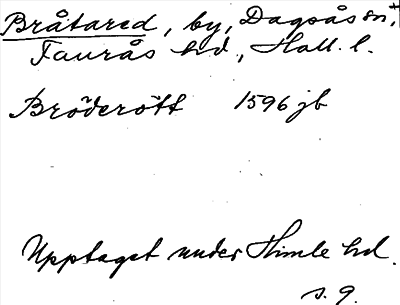 Bråtared, by, Dagsås sn,+
Faurås hd, Hall. l.
Bröderött 1596 jb
Upptaget under Himle hd.
s. 9.